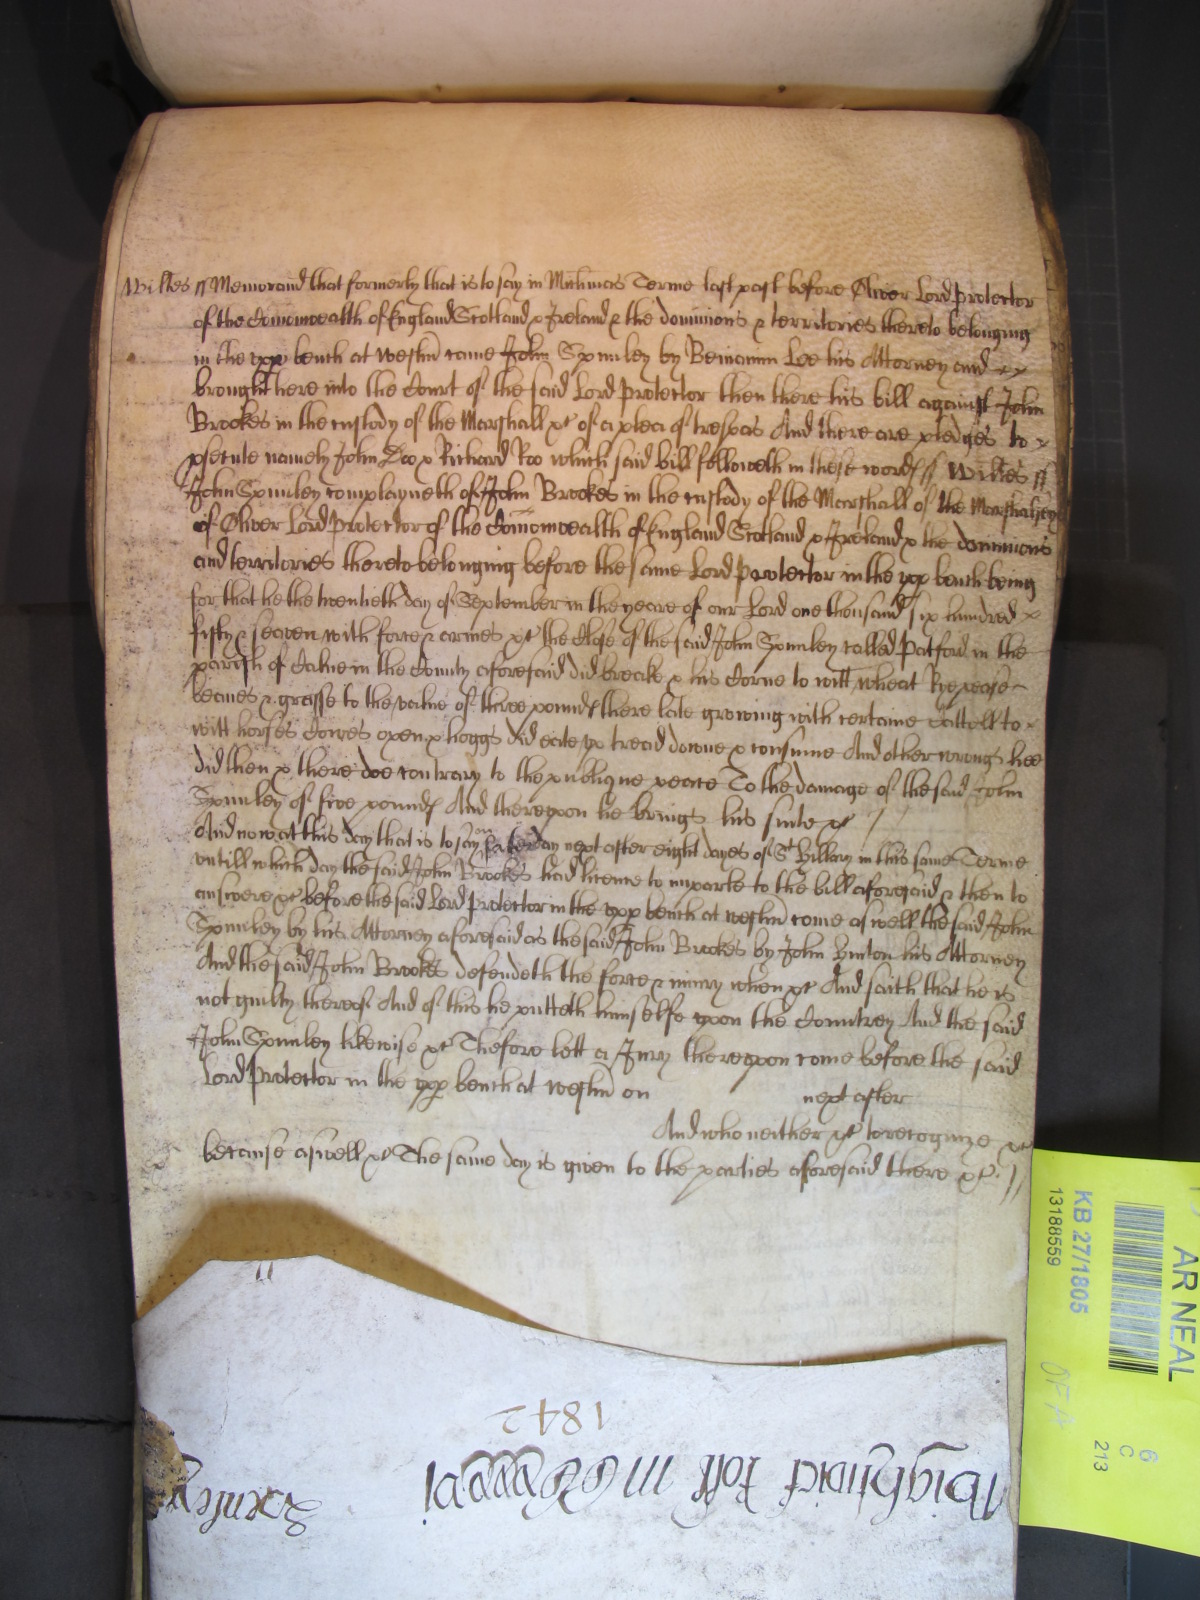 Wiltes ss Memorand that formerly that is to say in Michas Terme last past before Oliver Lord Protector
of the Comonwealth of England Scotland & Ireland & the dominions & territories thereto belonging
in the upp bench at Westm came John Spunley by Beniamin Lee his Attorney and
brought here into the Court of the said Lord Protector then there his bill against John
Brookes in the custody of the Marshall &c of a plea of trespas And there are pledges to
psecute namely John Doo & Richard Roo which said bill followeth in these words ss Wiltes ss
John Spunley complayneth of John Brookes in the custody of the Marshall of the Marshalsey
of Oliver Lord Protector of the Comonwealth of England Scotland & Ireland & the dominions
and territories thereto belonging before the same Lord Protector in the upp bench being
for that he the twentieth day of September in the yeare of our Lord one thousand six hundred
fifty & seaven with force & armes &c the Close of the said John Spunley called Patford in the
parish of Calne in the County aforesaid did breake & his Corne to witt wheat Rye pease
beanes & grasse to the value of three pounds there late growing with certaine cattell to
witt horses Cowes oxen & hoggs did eate up tread downe & consume And other wrongs hee
did then & there doe contrary to the publique peace To the damage of the said John
Spunley of five pounds And thereupon he brings his suite &c
And now at this day that is to say on Saterday next after eight dayes of St Hillary in this same Terme
untill which day the said John Brookes had licence to imparle to the bill aforesaid & then to
answere &c before the said Lord Protector in the upp bench at Westm come aswell the said John
Spunley by his Attorney aforesaid as the said John Brookes by John Hinton his Attorney
And the said John Brookes defendeth the force & iniury when &c And saith that he is
not guilty thereof And of this he putteth himselfe upon the Countrey And the said
John Spunley likewise &c Thefore lett a Jury thereupon come before the said
Lord Protector in the upp bench at Westm on next after
And who neither &c to recognize &c
because aswell &c The same day is given to the parties aforesaid there &c
1842
KB 27/1805
13188559
AR NEAL
6
C
213